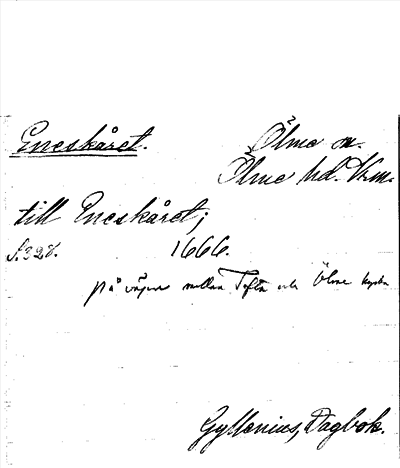 Eneskåret.
Ölme sn.
Ölme hd. Vrm.
till Eneskåret;
s. 328. 1666.
på vägen mellan Tofta och Ölme kyrka
Gyllenius, Dagbok.